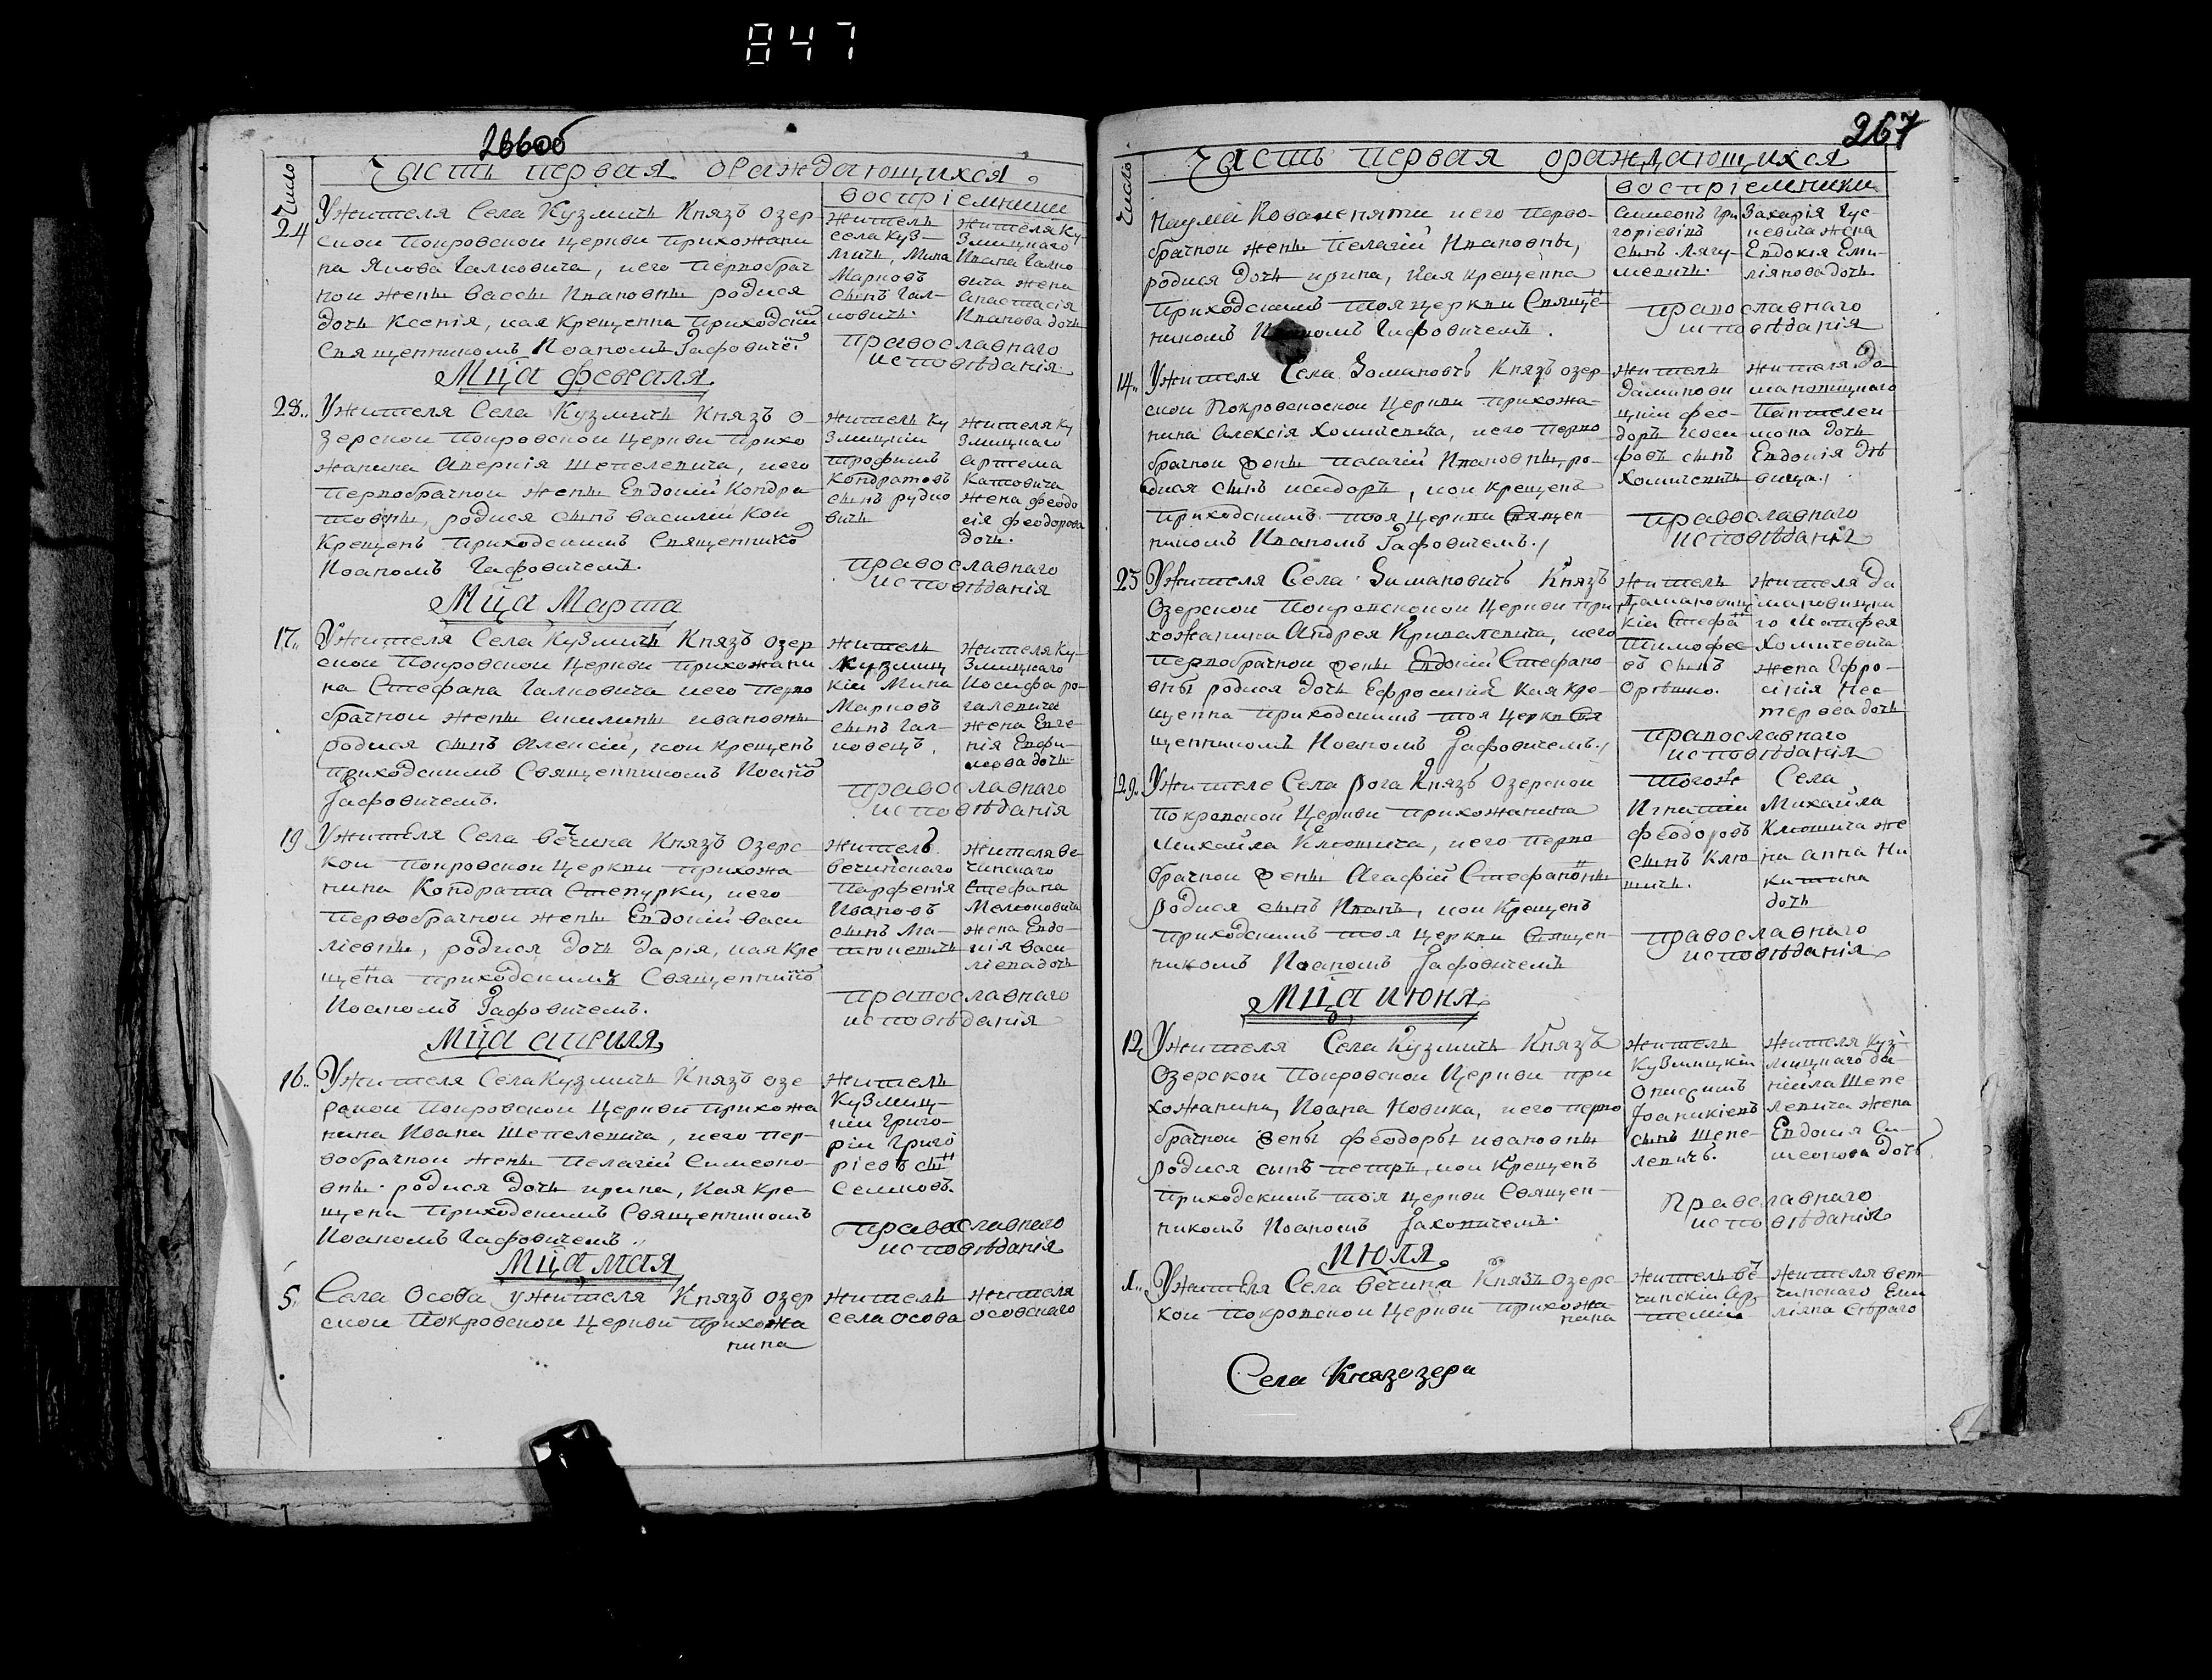 847
266об
Число
Часть первая ораждающихся
воспріемники
24
Ужителя Села Кузмичь Князъ озер
ской Покровской Церкви прихожани
на Якова Галковича, иего первобрач
ной жены Вассы Ивановны родися
дочь Ксенія, кая крещенна приходскій
Священникомъ Иоаномъ Гафовичем
житель
села Куз-
мичь, Мина
Марковъ
сынъ Гал-
ковичь.
жителя Ку-
змицкаго
Ивана Галко
вича жена
Анастасія
Иванова дочь
православнаго
исповѣданія
Мца февраля
28..
Ужителя Села Кузмичь Князъ о-
зерской Покровской Церкви прихо
жанина Аверкія Шепелевича, иего
первобрачной жены Евдокіи Кондра
товны, родися сынъ Василій кои
крещенъ приходскимъ Священнико
Иоаномъ Гафовичемъ.
житель Ку
змицкіи
трофимъ
Кондратовъ
сынъ рудко
вичь
жителя Ку
змицкаго
артема
Катовича
жена феодо
сія феодорова
дочь.
православнаго
исповѣданія
Мца Марта
17..
Ужителя Села Кузмичь Князъ озер
ской Покровской Церкви прихожани
на Стефана Галковича иего перво
брачной жены акилины ивановны
родися сынъ Алексій, кои крещенъ
приходскимъ Священникомъ Иоано
Гафовичемъ.
житель
Кузмиц
кіи Мина
Марковъ
сынъ Гал-
ковецъ.
жителя Ку-
змицкаго
Иосифа ро-
галевича
жена Евге-
нія Евфи-
мова дочь
православнаго
исповѣданія
19
Ужителя Села вечина Князъ Озерс
кои Покровской Церкви прихожа-
нина Кондрата Степурки, иего
первобрачной жены Евдокіи васи
ліевны, родися дочь дарія, кая кре
щена приходскимъ Священнико
Иоаномъ Гафовичемъ.
житель
вечинскаго
Парфенія
Ивановъ
сынъ Ма-
тюкевичь
жителя ве
чинскаго
Стефана
Мелюковича
жена Евдо-
кія васи
ліева дочь
православнаго
исповѣданія
Мца априля
16..
Ужителя Села Кузмичь Князъ озе
рской Покровской Церкви прихожа
нина Ивана Шепелевича, иего пер-
вобрачной жены Пелагіи Симеоно-
вны родися дочь ирина, кая кре-
щена приходскимъ Священникомъ
Иоаномъ Гафовичемъ.
житель
Кузмиц-
кіи Григо-
ріи Григо
ріевъ сы
Семковъ.
православнаго
исповѣданія
Мца мая
5.
Села Особа ужителя Князъ озер
ской Покровской Церкви прихожа
нина
житель
села особа
жителя
особскаго
267
Число
Часть первая ораждающихся
воспріемники
Наума Коваленяти иего перво-
брачной жены Пелагіи Ивановны,
родися дочь ирина, кая крещенна
приходскимъ тоя церкви Свяще
никомъ Иоаномъ Гафовичемъ.
Симеонъ Гри
горіевичъ
сынъ Лягу-
шевичь.
Захарія Гус-
невича жена
Евдокія Еми-
ліянова дочь
православнаго
исповѣданія
14..
Ужителя Села Домановичъ Князъ озер
ской Покровскоской Церкви прихожа-
нина Алексія Хомичевича, иего перво
брачной жены пелагіи Ивановны, ро-
дися сынъ исидоръ, кои крещенъ
приходскимъ тоя Церкви Священ-
никомъ Иваномъ Гафовичемъ.
житель
Даманови
цкіи фео-
доръ Иоси-
фовъ сынъ
Хомичевичь
жителя До-
мановицкаго
Пантелеи-
мона дочь
Евдокія дѣ
вица.
православнаго
исповѣданія
25
Ужителя Села Домановичъ Князъ
Озерской Покровскокои Церкви при
хожанина Андрея Кривалевича, иего
первобрачной жены Евдокіи Стефано-
вны родися дочь Ефросинія кая кре-
щенна приходскимъ тоя Церкв Свя
щенникомъ Иоаномъ Гафовичемъ.
житель
Дамановиц
кіи Стефа
тимофее
въ сынъ
Орѣшко.
жителя До
мановицка
го Матфея
Хомичевича
жена Ефро-
синія Нес-
терова дочь
православнаго
исповѣданія
29..
Ужителе Села Рога Князъ Озерской
Покровской Церкви прихожанина
Михайла Клюшича, иего перво
брачной жены Агафіи Стефановны
родися сынъ Иванъ, кои Крещенъ
приходскимъ тоя церкви Священ-
никомъ Иоаномъ Гафовичемъ
Тогожъ Села
Игнатіи
феодоровъ
сынъ Клю
шичь.
Михайла
Клюшича же
на анна Ни
китина
дочь
православнаго
исповѣданія
Мца июня
12
Ужителя Села Кузмичь Князъ
Озерской Покровской Церкви при
хожанина, Иоана Новика, иего перво
брачной жены феодоры ивановны
родися сынъ петръ, кои Крещенъ
приходскимъ тоя церкви Священ-
никомъ Иоаномъ Гаховичемъ.
житель
Кузмицкіи
Онисимъ
Іоаникіевъ
сынъ Шепе-
левичъ.
жителя Куз-
мицкаго Да-
ніила Шепе
левича жена
Евдокия Си-
меонова дочь
Православнаго
исповѣданія
июля
1..
Ужителя Села вечина Князъ Озерс
кои покровской Церкви прихожа
нина
житель ве
чинскіи Ар
темій
жителя веч
чинскаго Еми
ліяна Сѣраго
Села Князозера